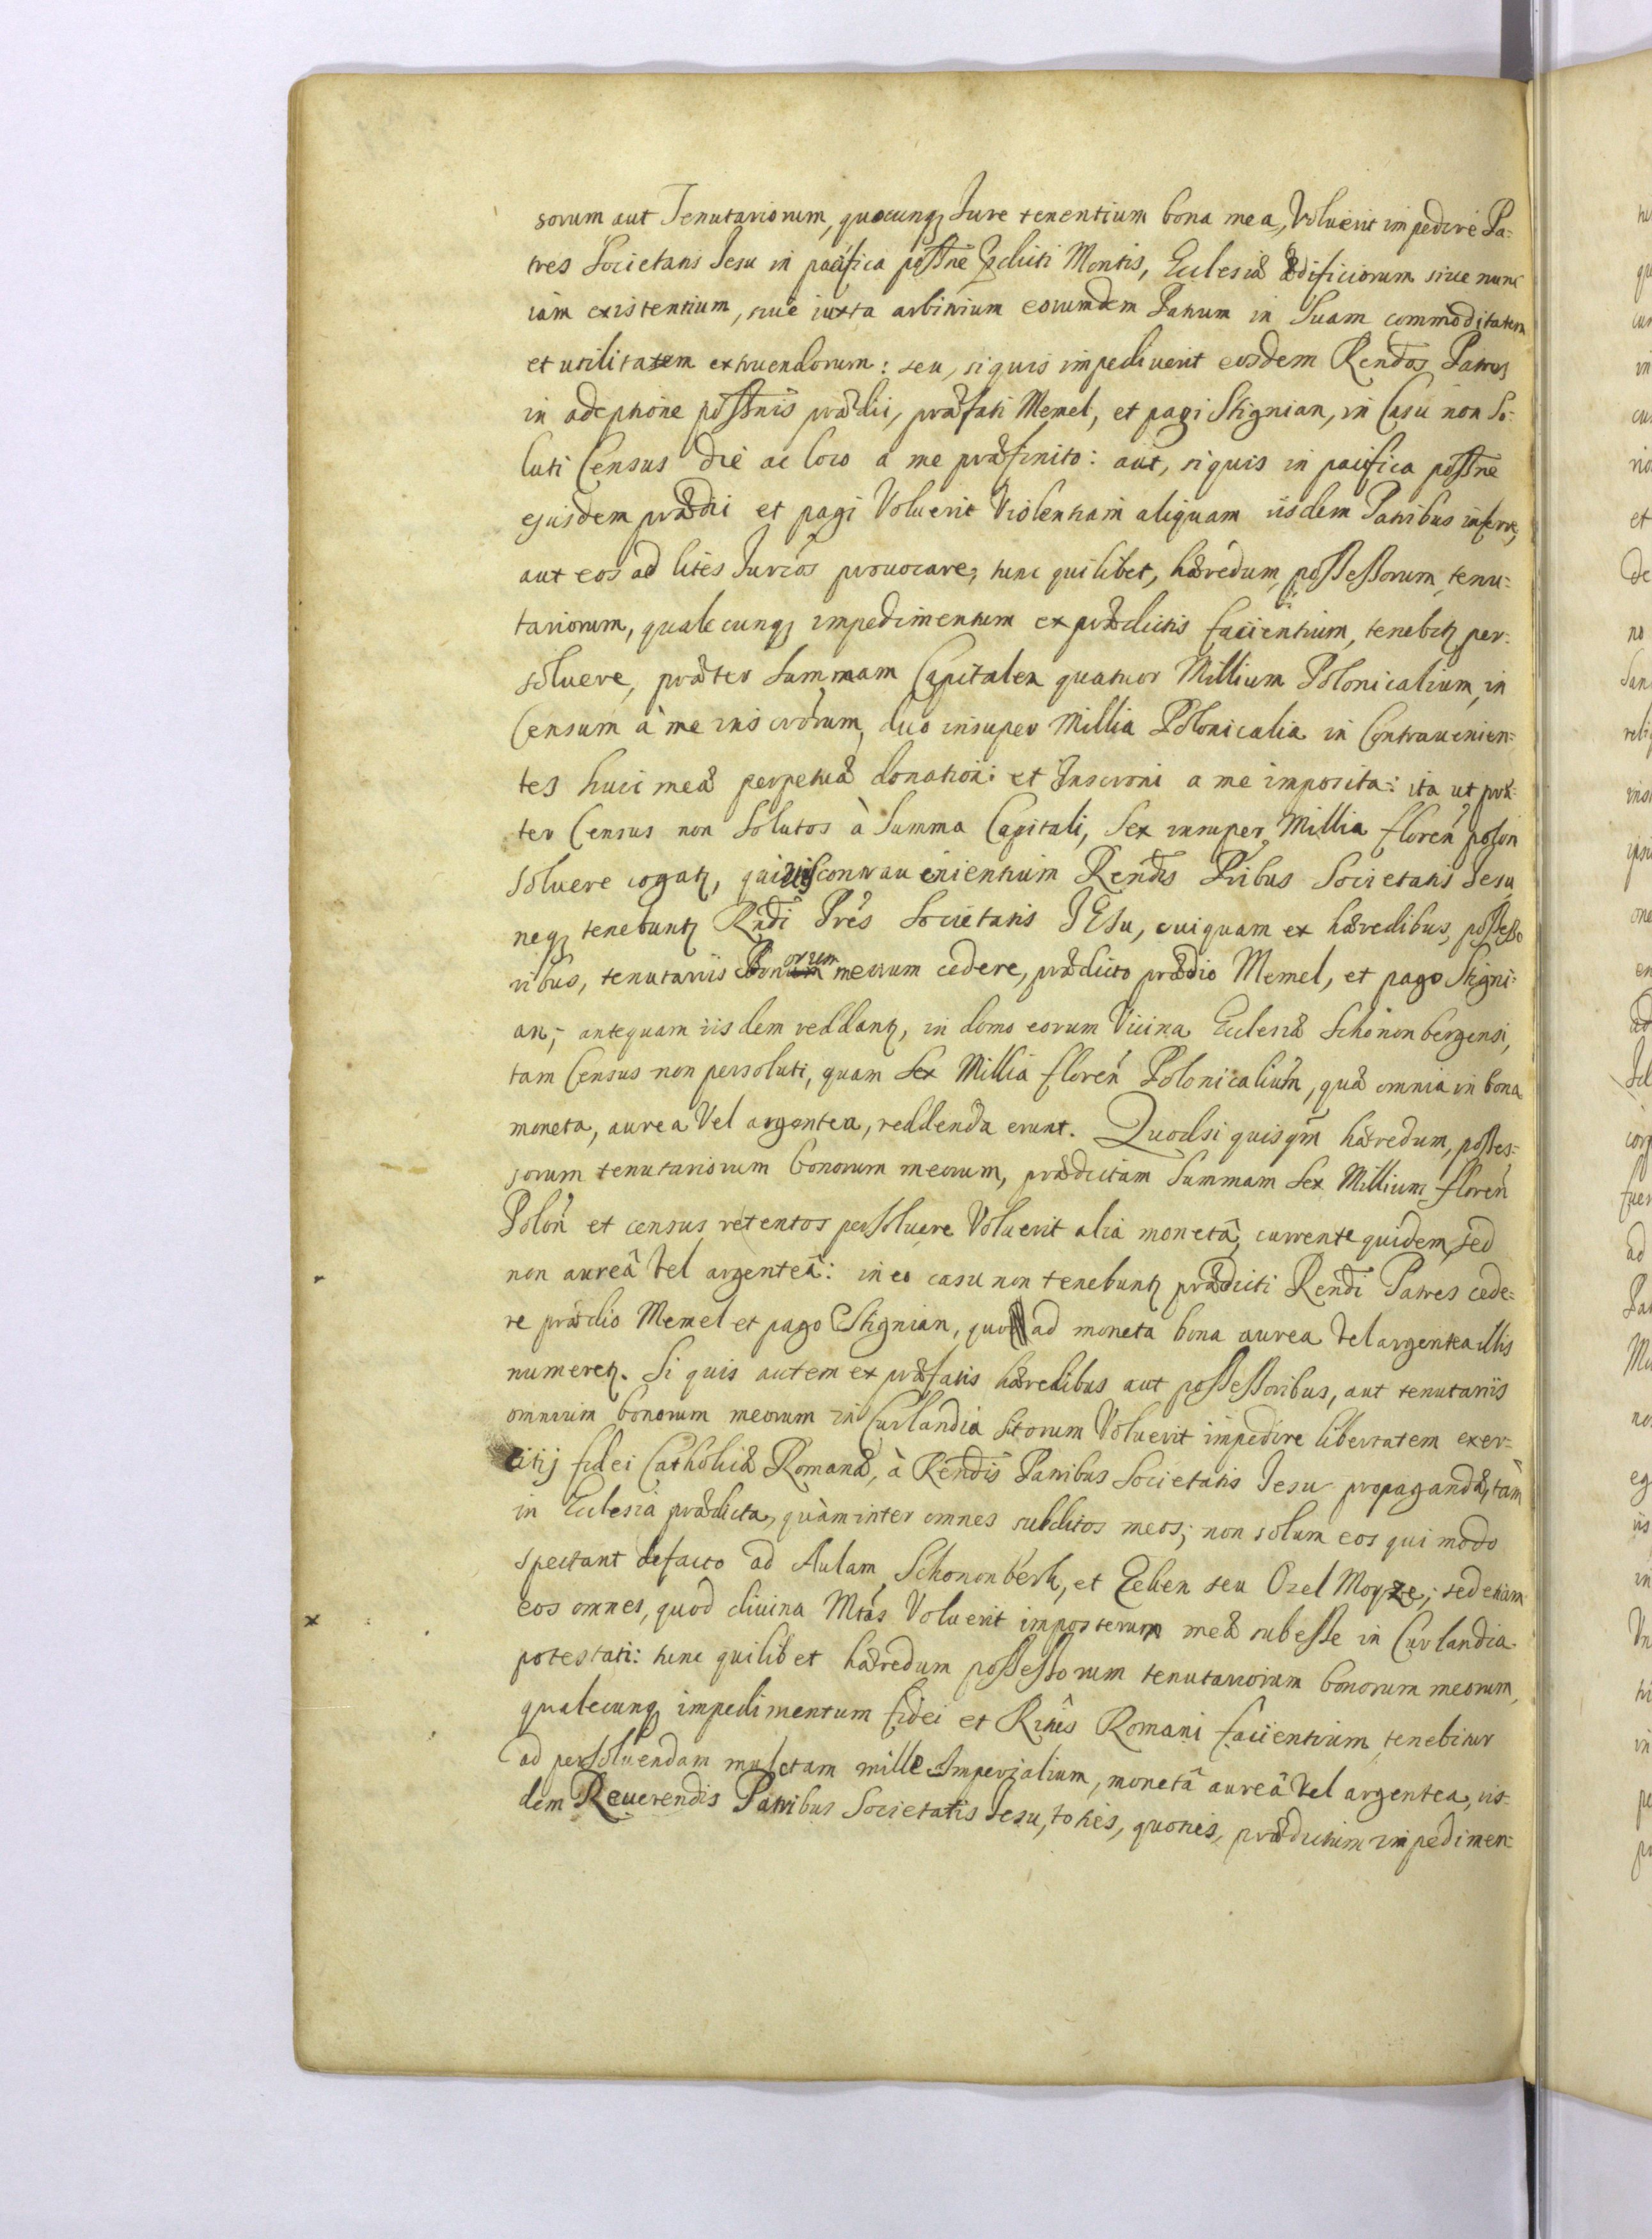 sorum aut Tenutariorum, quocunq Jure tenentium bona mea, Voluerit impedire Pa:
tres Societatis Jesu in pacifica possne pdicti Montis, Ecclesiæ ædificiorum siue nunc
iam existentium, siue iuxta arbitrium eorumdem Patrum in Suam commoditatem
et utilitatem extruendorum: seu, si quis impediuerit eosdem Rendos Patres
in adeptione possnis prædii, præfati Memel, et pagi Stignian, in Casu non So:
luti Census die ac loco a me præfinito: aut, si quis in pacifica possne
ejusdem prædii et pagi Voluerit Violentiam aliquam iisdem Patribus inferre,
aut eos ad lites Jurcos prouocare; tunc quilibet, hæredum, possessorum, tenu:
tariorum, qualecunq impedimentum ex prædictis facientium, tenebitq per:
soluere, præter Summam Capitalem quatuor Millium Polonicalium, in
Censum à me inscriptorum, duo insuper Millia Polonicalia in Contrauenien:
tes huic meæ perpetuæ donationi et Inscroni a me imposita: ita ut præ:
ter Census non Solutos à Summa Capitali, Sex insuper Millia floren polon
soluere cogatq, quiuis contrauenientium Rendis Pribus Societatis Jesu
neq tenebuntq Rndi Pres Societatis JEsu, cuiquam ex hæredibus, possesso
ribus, tenutariis Bonorum meorum cedere, prædicto prædio Memel, et pago Stigni:
an; antequam iisdem reddantq, in domo eorum Vicina Ecclesiæ Schononbergensi,
tam Census non persoluti, quam Sex Millia floren Polonicalium, quæ omnia in bona
moneta, aurea Vel argentea, reddenda erunt. Quodsi quisqm hæredum, posses:
sorum tenutariorum bonorum meorum, prædictam Summam Sex Millium floren
Polon et census retentos persoluere Voluerit alia monetâ, currente quidem, sed
non aureâ Vel argenteâ: in eo casu non tenebuntq prædicti Rendi Patres cede:
re prædio Memel et pago Stignian, quoad moneta bona aurea Vel argentea illis
numeretq. Si quis autem ex præfatis hæredibus aut possessoribus, aut tenutariis
omnium bonorum meorum in Curlandia Sitorum Voluerit impedire libertatem exer:
citij fidei Catholicæ Romanæ, à Rendis Patribus Societatis Jesu propagandæ, tàm
in Ecclesia prædicta, quàm inter omnes subditos meos; non solum eos qui modo
spectant defacto ad Aulam Schononberk, et Eelzen seu Ozel Moyze; sed etiam
eos omnes, quod diuina Mtas Voluerit imposterum meæ subesse in Curlandia
potestati: tunc quilibet hæredum possessorum tenutariorum bonorum meorum,
qualecunq impedimentum fidei et Ritûs Romani facientium, tenebitur
ad persoluendam mulctam mille Imperialium, monetâ aureâ Vel argentea, iis:
dem Reuerendis Patribus Societatis Jesu, toties, quoties, prædictum impedimen: